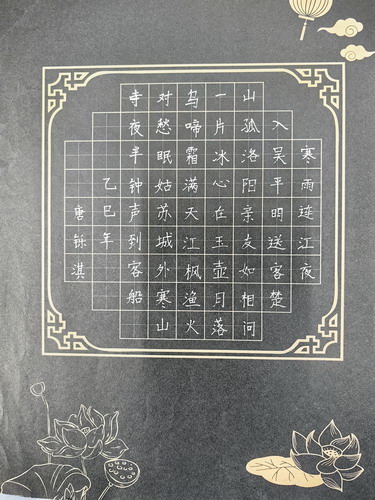 寒雨连江夜
入吴平明送客楚
山孤洛阳亲友如相问
一片冰心在玉壶月落
乌啼霜满天江枫渔火
对愁眠姑苏城外寒山
寺夜半钟声到客船
乙巳年
唐铄淇